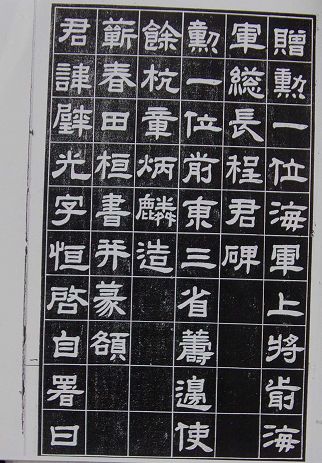 贈勲一位海軍上將前海
軍總長程君碑
勲一位前東三省籌邊使
餘杭章炳麟造
蘄春田桓書并篆頟
君諱璧光字恒啓自署曰